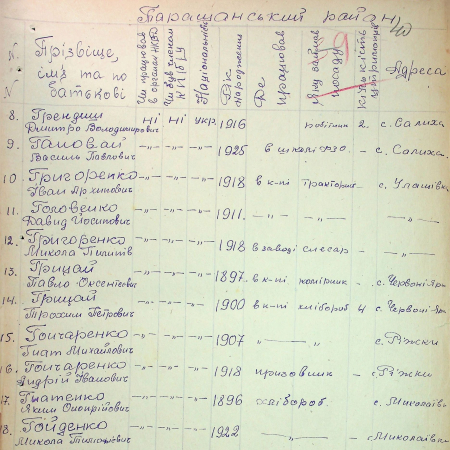 Таращанський район
40
№ Прізвіще, імя та по батькові
Чи працював в органах НКВД
Чи був членом КП(б)У
Національність
Рік народження
Де працював
Яку займав посаду
кількість утриманців
Адреса
8. Грендиш Дмитро Володимирович ні ні укр. 1916 робітник 2. с. Салиха
9. Василь Павлович —"— —"— —"— 1925 в школі ФЗО. — с. Салиха.
10. Григоренко Іван Архипович —"— —"— —"— 1918 в к-пі тракторист — с. Улашівка
11. Головенко Давид Йосипович —"— —"— —"— 1911. —"— —"— —"—
12. Григоренко Микола Пилипів —"— —"— —"— 1918 в заводі слесар — —"—
13. Грицай Павло Оксенієвич —"— —"— —"— 1897. в к-пі комірник — с. Червоні-Яри
14. Грицай Трохим Петрович —"— —"— —"— 1900 в к-пі хлібороб 4 с. Червоні-Яри
15. Гончаренко Гнат Михайлович —"— —"— —"— 1907 —"— с. Ріжки
16. Гончаренко Андрій Іванович —"— —"— —"— 1918 призовник — с. Ріжки
17. Гнатенко Яким Онопрійович —"— —"— —"— 1896 хлібороб. — с. Миколаївка
18. Гойденко Микола —"— —"— —"— 1922 —"— — с. Миколаївка